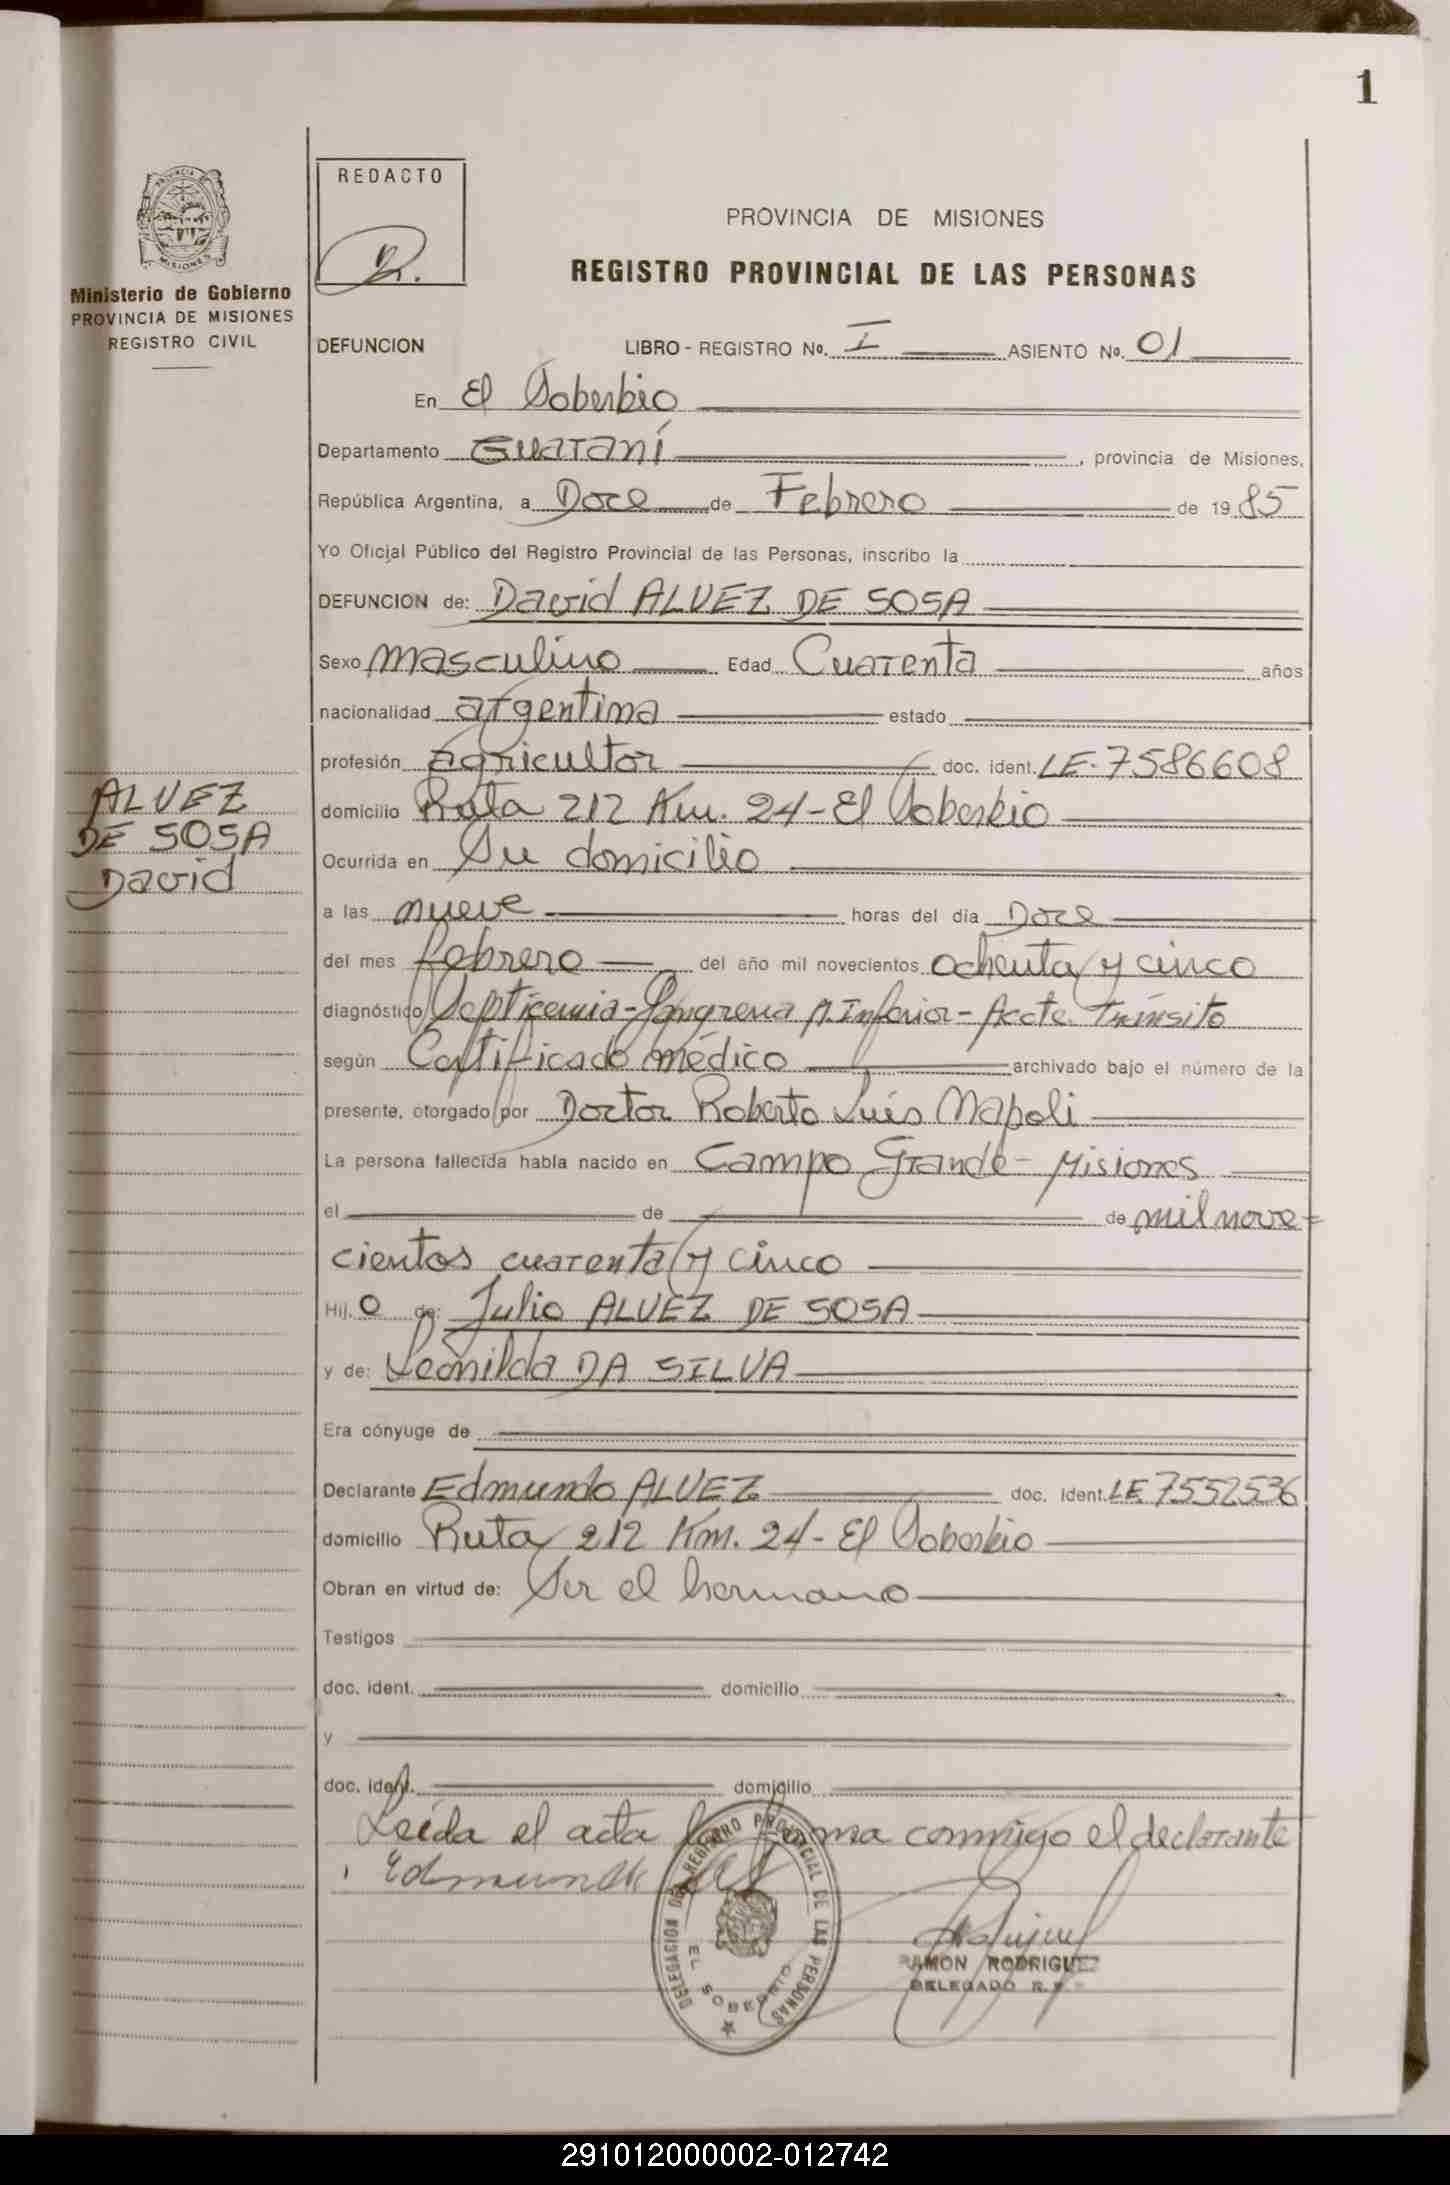 1
PROVINCIA DE MISIONES
Ministerio de Gobierno
PROVINCIA DE MISIONES
REGISTRO CIVIL
REDACTO
PROVINCIA DE MISIONES
REGISTRO PROVINCIAL DE LAS PERSONAS
DEFUNCION LIBRO - REGISTRO No. I ASIENTO No. 01
En El Soberbio
Departamento Guaraní, provincia de Misiones,
República Argentina, a Doce de Febrero de 1985
Yo Oficial Público del Registro Provincial de las Personas, inscribo la
DEFUNCION de: David ALVEZ DE SOSA
Sexo masculino Edad Cuarenta años
nacionalidad argentina estado
profesión agricultor doc. ident. LE. 7586608
domicilio Ruta 212 Km. 24 - El Soberbio
Ocurrida en Su domicilio
a las nueve horas del día Doce
del mes febrero del año mil novecientos ochenta y cinco
diagnóstico Septicemia - Gangrena M. Inferior - Accte. Tránsito
según Certificado médico archivado bajo el número de la
presente, otorgado por Doctor Roberto Luis Napoli
La persona fallecida había nacido en Campo Grande - Misiones
el de de mil nove=
cientos cuarenta y cinco
Hij. o de: Julio ALVEZ DE SOSA
y de: Leonilda DA SILVA
Era cónyuge de
Declarante Edmundo ALVEZ doc. ident. LE. 7552536
domicilio Ruta 212 Km. 24 - El Soberbio
Obran en virtud de: Ser el hermano
Testigos
doc. ident. domicilio
y
doc. ident. domicilio
Leída el acta la firma conmigo el declarante
Edmundo
ALVEZ
DE SOSA
David
DELEGACION DEL REGISTRO PROVINCIAL DE LAS PERSONAS
EL SOBERBIO
RAMON RODRIGUEZ
DELEGADO R.P.
291012000002-012742